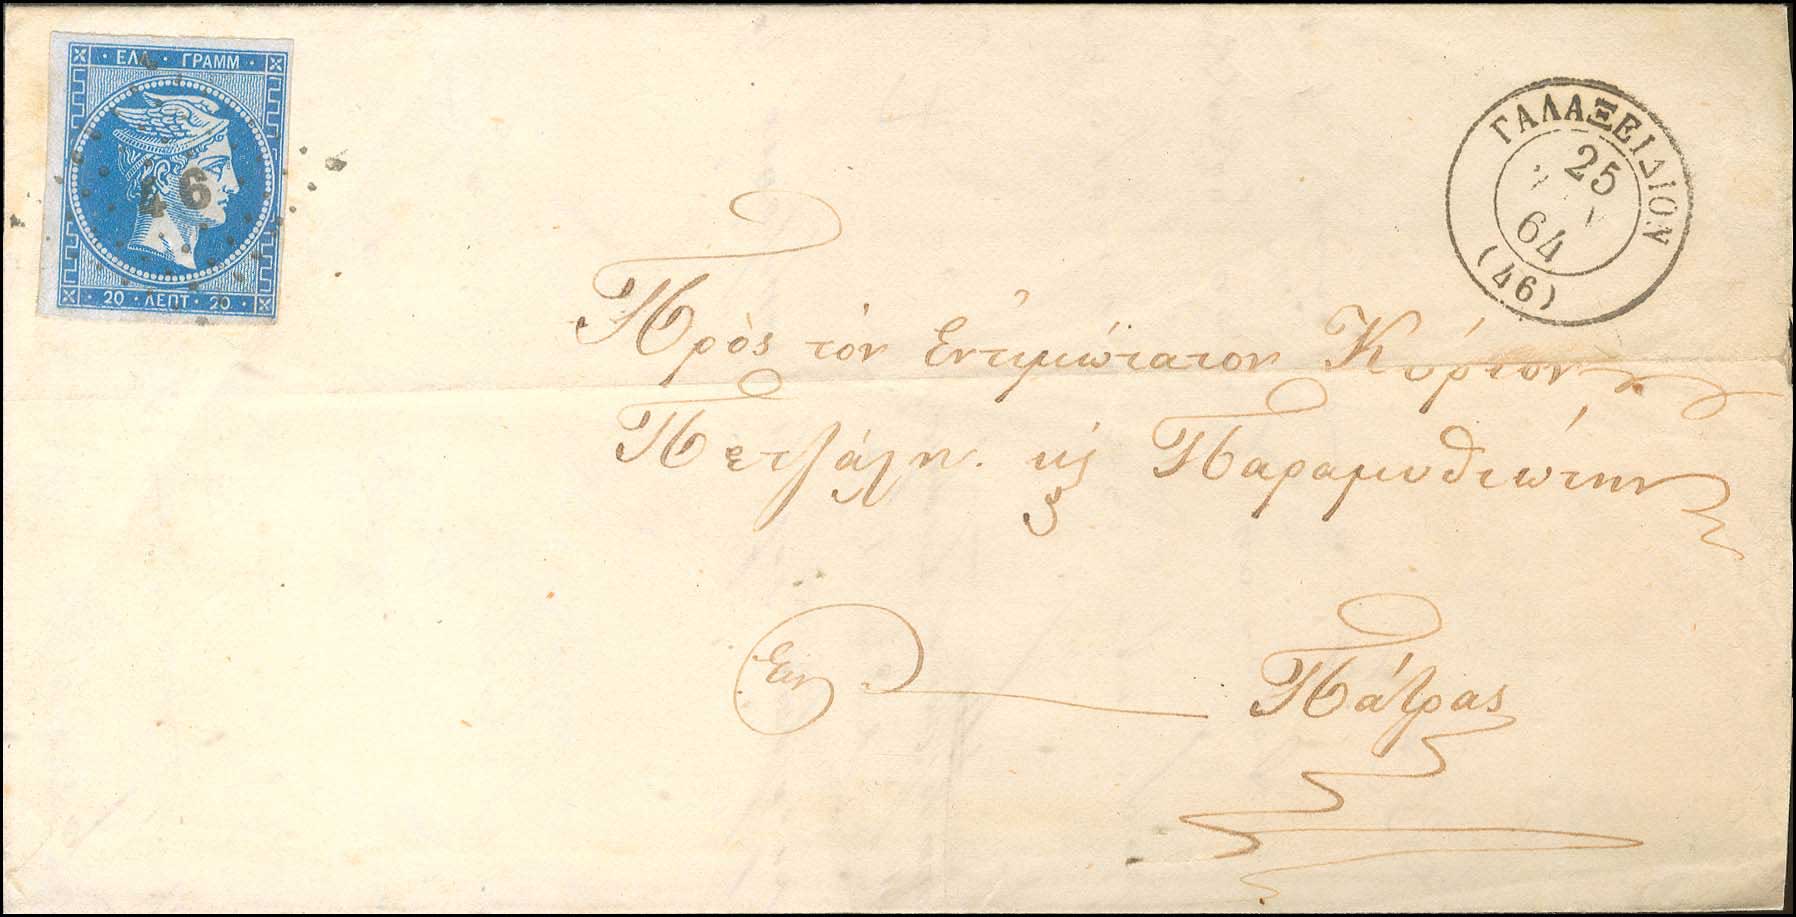 · ΕΛΛ · ΓΡΑΜΜ ·
46
· 20 · ΛΕΠΤ · 20 ·
ΓΑΛΑΞΕΙΔΙΟΝ
25
64
(46)
Πρὸς τὸν Ἐντιμώτατον Κύριον
Πετζάλη. Παραμυθιώτην
Εἰς Πάτρας